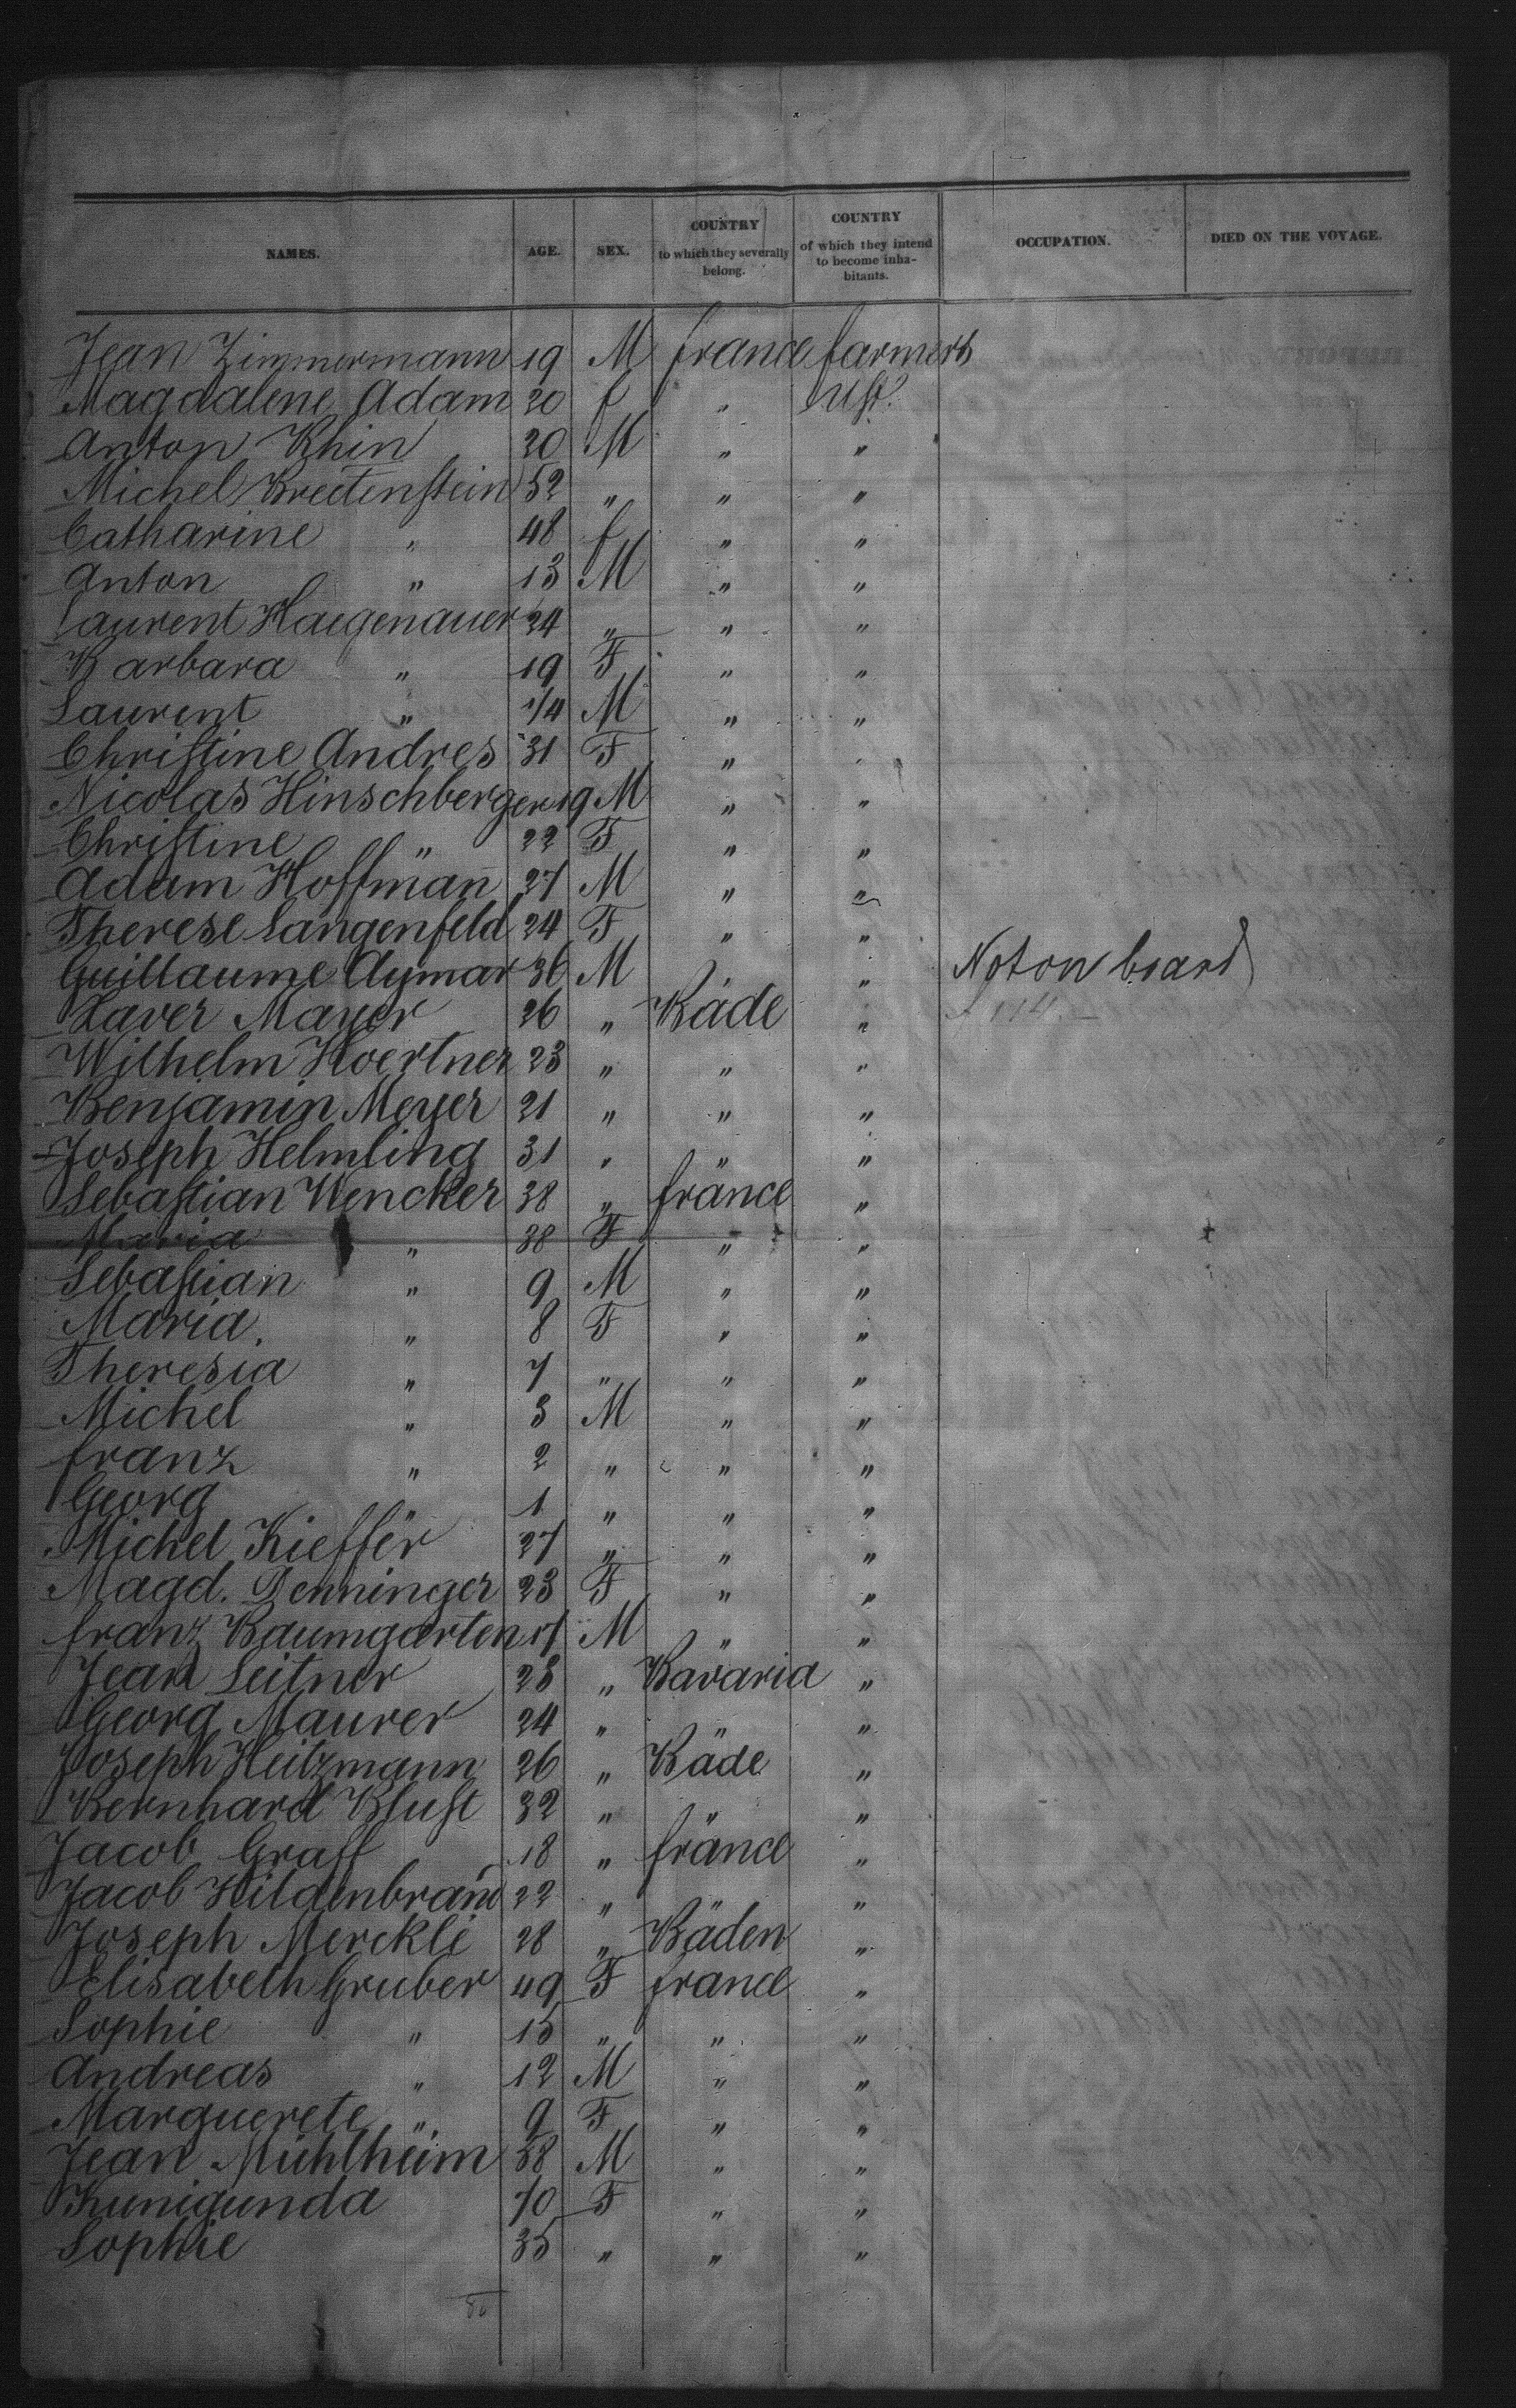 NAMES. AGE. SEX. COUNTRY to which they severally belong. COUNTRY of which they intend to become inhabitants. OCCUPATION. DIED ON THE VOYAGE.
Jean Zimmermann 19 M france farmers
Magdalene Adam 20 f " USt.
Anton Khin 20 M " "
Michel Breitenstein 52 " " "
Catharine " 48 f " "
Anton " 13 M " "
Laurent Haegenauer 24 " " "
Barbara " 19 F " "
Laurent " 1/4 M " "
Christine Andres 31 F " "
Nicolas Hinschberger 19 M " "
Christine " 22 F " "
Adam Hoffmañ 27 M " "
Therese Langenfeld 24 F " "
Guillaume Aymar 36 M " " Not on board
Xaver Mayer 26 " Bade "
Wilhelm Hoertner 23 " " "
Benjamin Meyer 21 " " "
Joseph Helmling 31 " " "
Sebastian Wencker 38 " france "
Maria " 38 F " " +
Sebastian " 9 M " "
Maria. " 8 F " "
Theresia " 7 " " "
Michel " 3 M " "
franz " 2 " " "
Georg " 1 " " "
Michel Kieffer 27 " " "
Magd. Denninger 23 F " "
franz Baumgarten 17 M " "
Jean Leitner 28 " Bavaria "
Georg Maurer 24 " " "
Joseph Heitzmann 26 " Bade "
Bernhard Klust 32 " " "
Jacob Graff 18 " france "
Jacob Hildenbrañd 22 " " "
Joseph Merckle 28 " Baden "
Elisabeth Gruber 49 F france "
Sophie " 15 " " "
Andreas " 12 M " "
Marguerete " 9 F " "
Jean Mühlheim 38 M " "
Kunigunda 70 F " "
Sophie 35 " " "